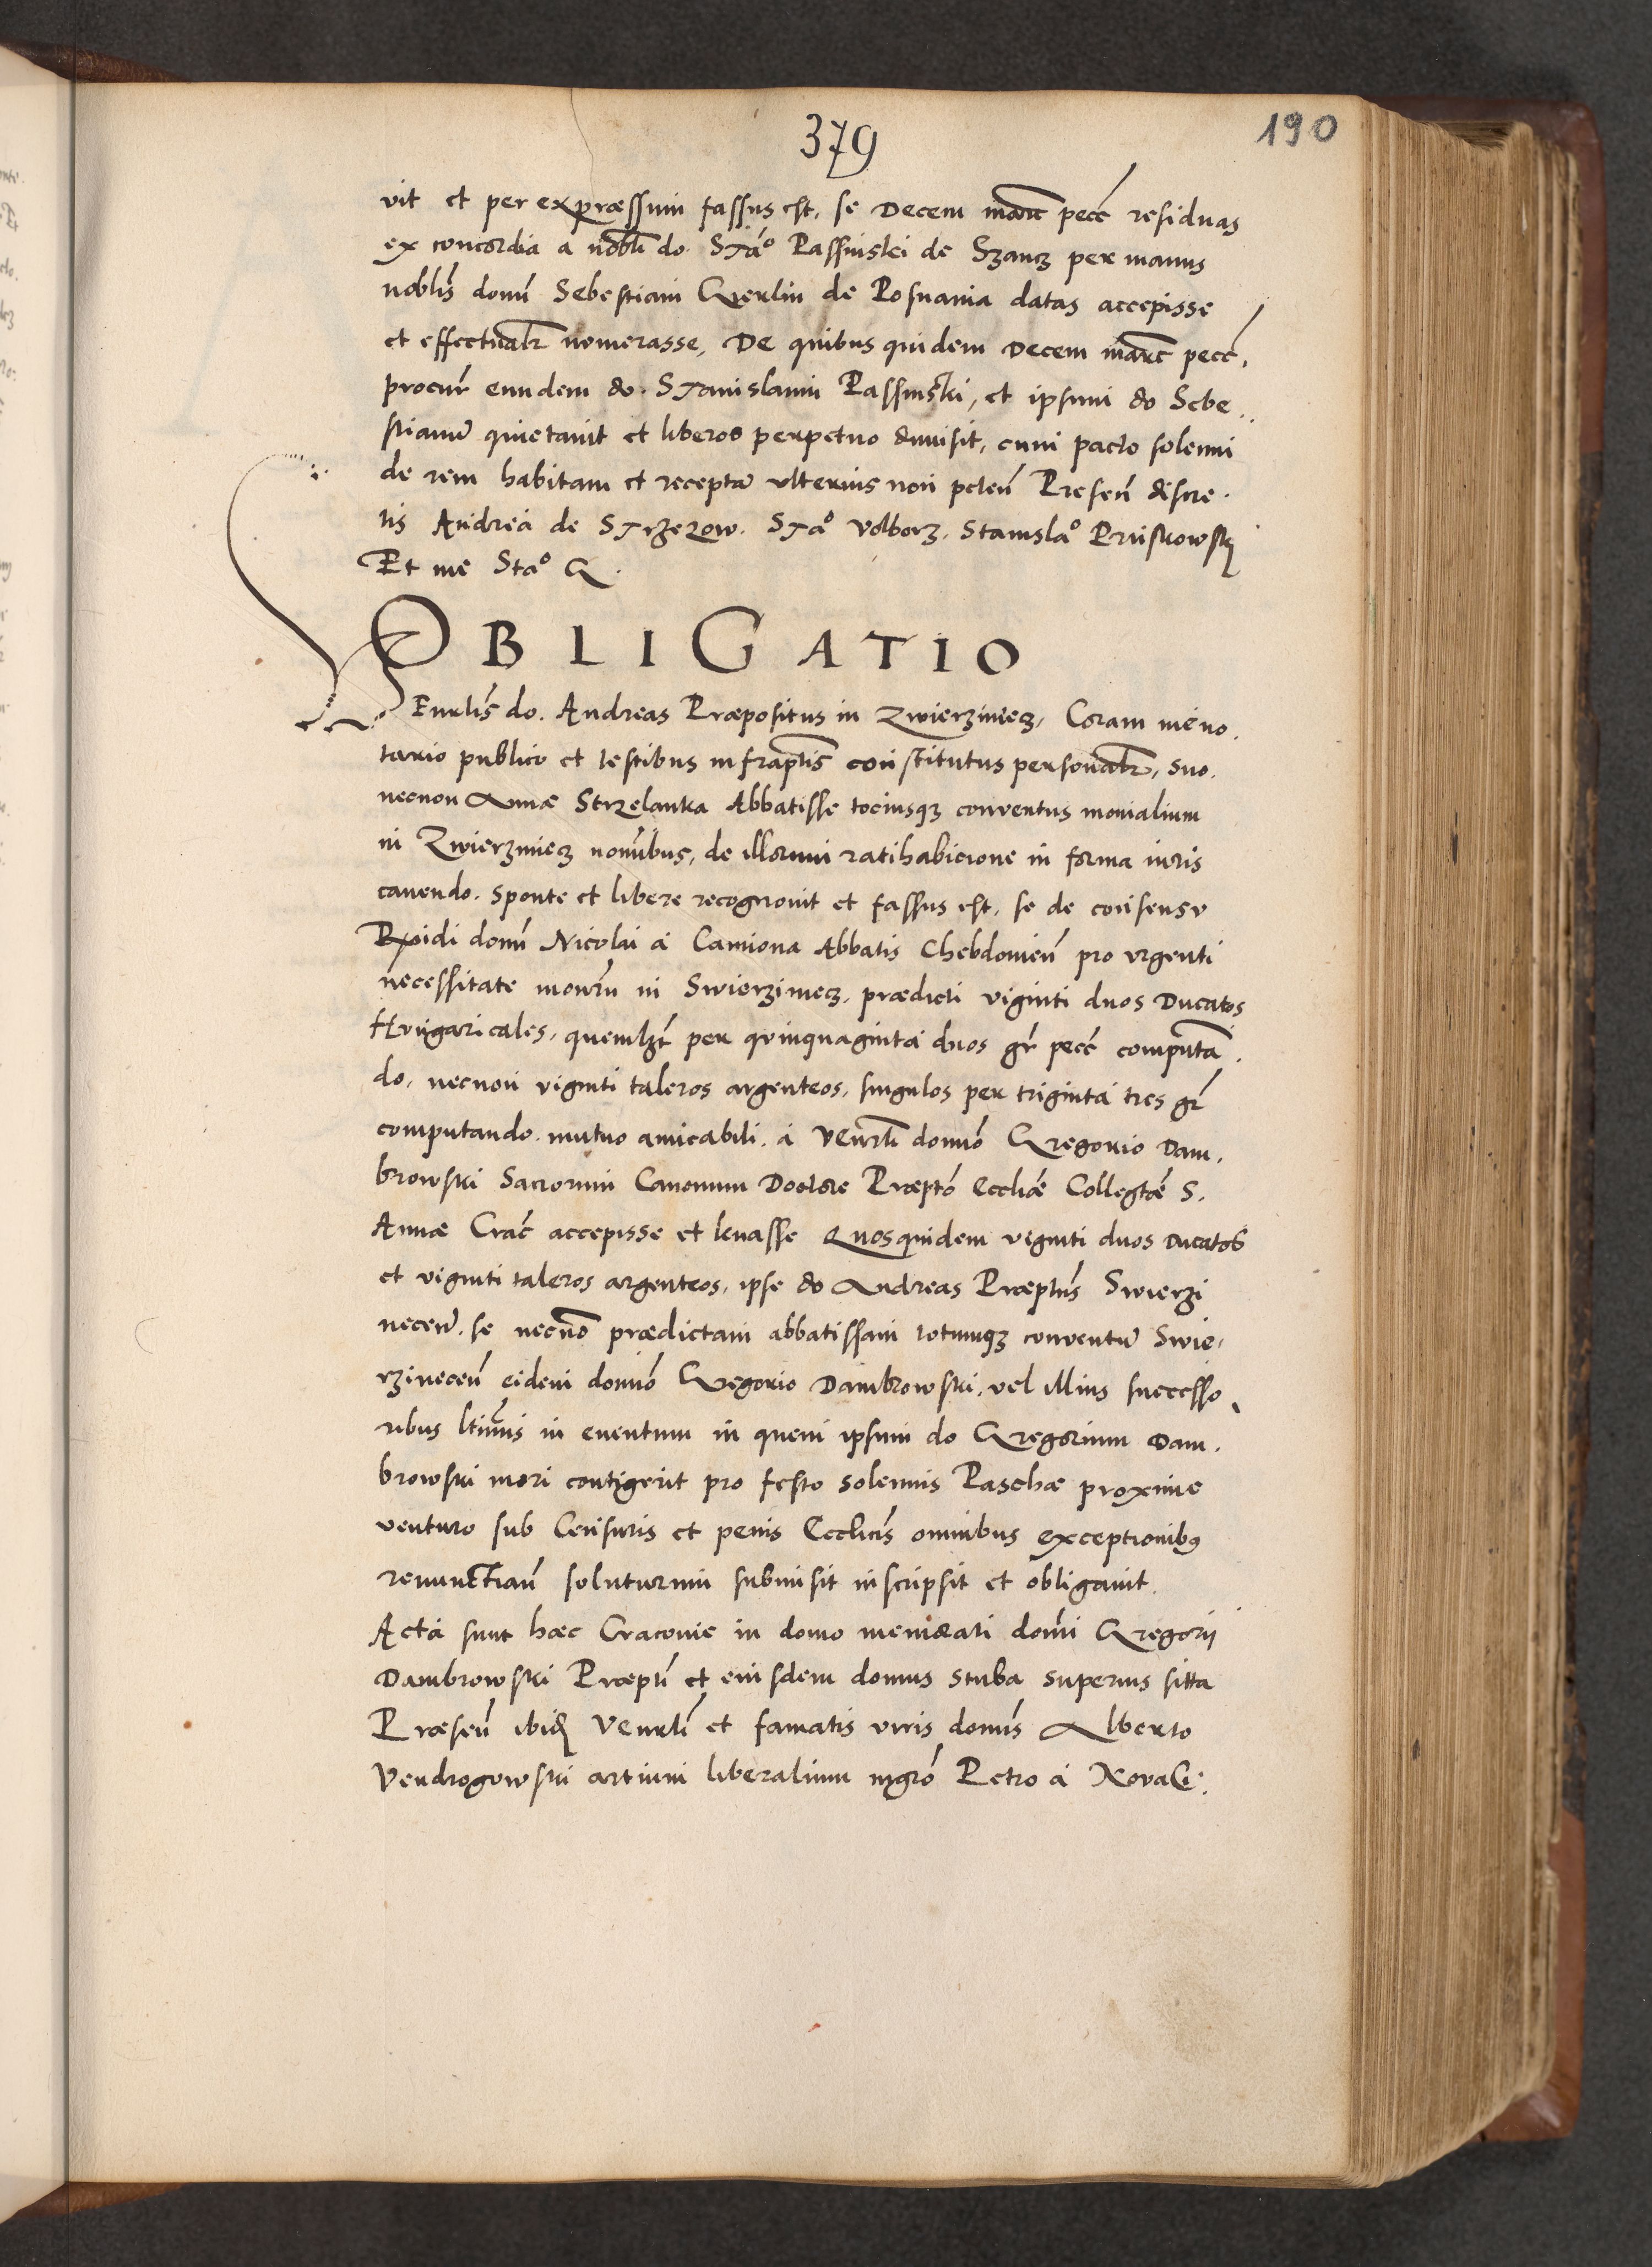 379
190
vit et per expræssum fassus est, se Decem marc pecc residuas
ex concordia a nobli do. Stao Passinskei de Szancz per manus
noblis domi Sebestiani Gerlin de Posnania datas accepisse
et effectualr numerasse, De quibus quidem Decem marc pecc,
procur eundem do. Stanislaum Passinski, et ipsum do Sebe.
stianum quietavit et liberos perpetuo dimisit, cum pacto solenni
de rem habitam et receptam ulterius non peten Presen discre.
tis Andrea de Strzezow. Stao Volborz. Stanislao Pruskowskÿ
Et me Stao G.
OBLIGATIO
VEnrlis do. Andreas Præpositus in Zwierziniecz, Coram me no.
tario publico et testibus infraptis constitutus personalr, suo.
necnon Annæ Strzelanka Abbatisse tociusqz conventus monialium
in Zwierziniecz nominibus, de illorum ratihabicione in forma iuris
cavendo. sponte et libere recognovit et fassus est, se de consensu
Rpidi domi Nicolai à Camiona Abbatis Chebdovien pro urgenti
necessitate monrij in Swierziniecz. prædicti viginti duos Ducatos
Hungaricales, quemlzt per quinquaginta duos gr pecc computan.
do, necnon viginti taleros argenteos, singulos per triginta tres gr
computando. mutuo amicabili. à VEnrli domo Gregorio Dam.
browski Sacrorum Canonum Doctore Præpto Eccliæ Collegtæ S.
Annæ Crac accepisse et levasse Quosquidem viginti duos Ducatos
et viginti taleros argenteos, ipse do Andreas Præptus Swierzi
necen. se necno prædictam abbatissam totumqz conventum Swie,
rzinecen eidem domo Gregorio Dambrowski, vel illius successo
ribus ltimis in eventum in quem ipsum do Gregorium Dam.
browski mori contigerit pro festo solennis Paschæ proxime
venturo sub Censuris et penis Ecclicis omnibus exceptionibus
renunctian soluturum submisit inscripsit et obligavit.
Acta sunt hæc Cracovie in domo memorati domi Gregorii
Dambrowski Præpti et eiusdem domus stuba superius sitta
Præsen ibid VEnrli et famatis viris domis Alberto
Vendrogowski artium liberalium mgro Petro à Nova Ci.